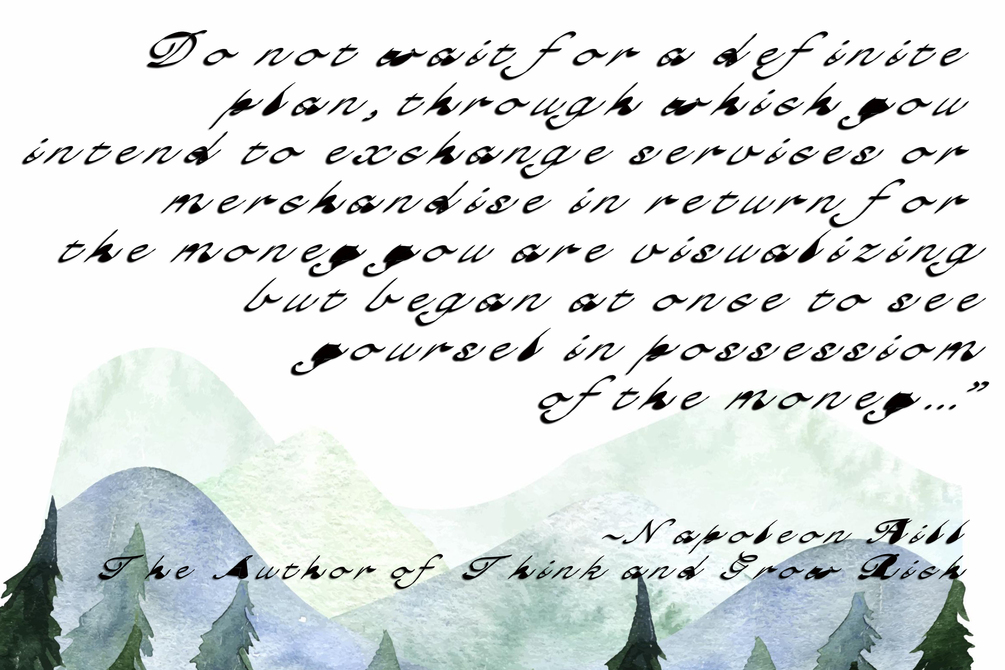 Do not wait for a definite
plan, through which you
intend to exchange services or
merchandise in return for
the money you are visualizing
but began at once to see
yoursel in possessiom
of the money...”
~Napoleon Hill
The Author of Think and Grow Rich